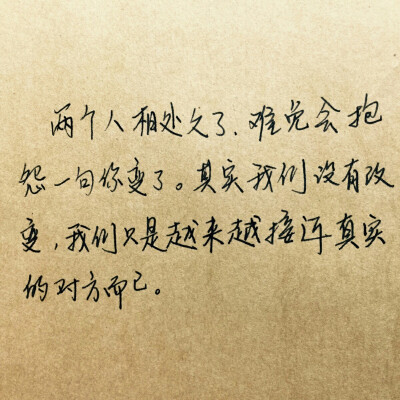 两个人相处久了、难免会抱
怨一句你变了。其实我们没有改
变,我们只是越来越接近真实
的对方而已。